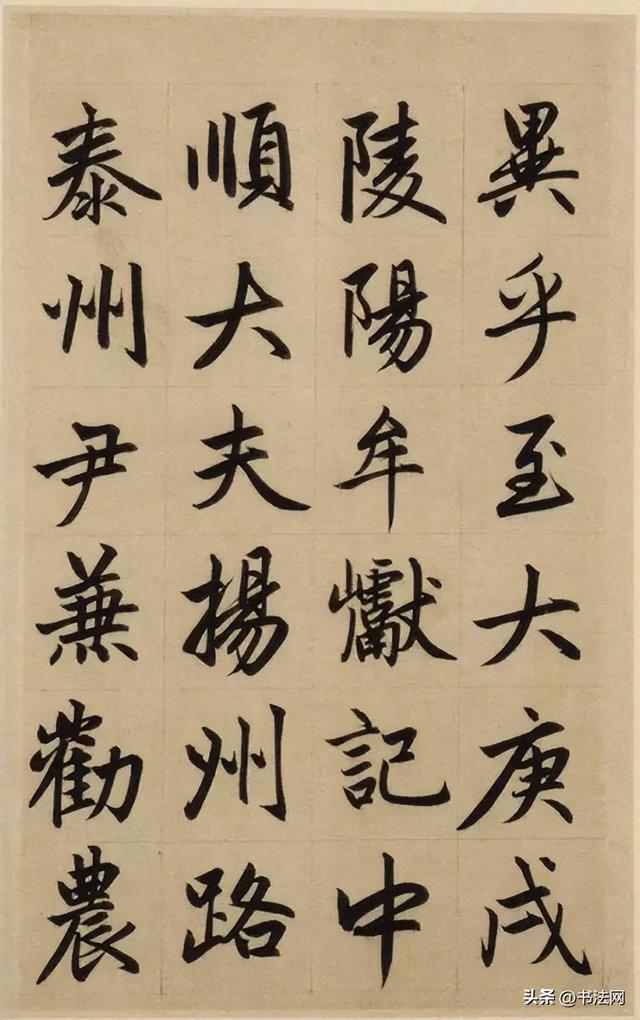 異乎至大庚戌
陵陽牟巘記中
順大夫揚州路
泰州尹兼勸農
头条 @书法网